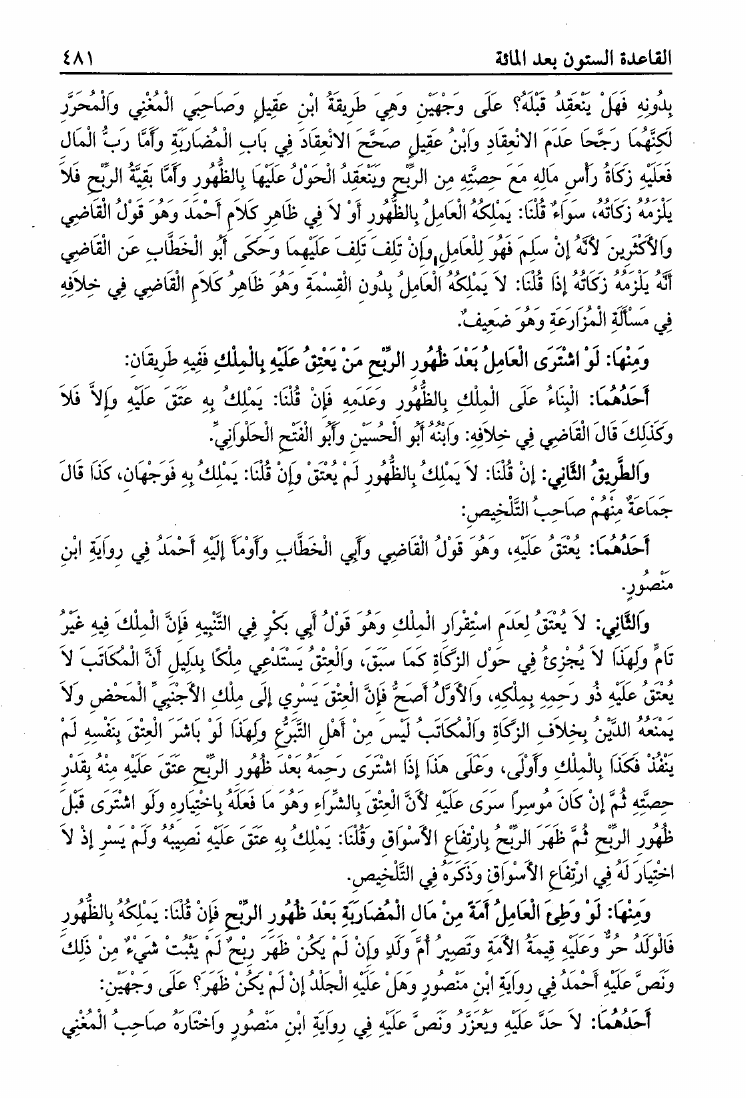 القاعدة الستون بعد المائة ٤٨١
بِدُونِهِ فَهَلْ يَنْعَقِدُ قَبْلَهُ؟ عَلَى وَجْهَيْنِ وَهِيَ طَرِيقَةُ ابْنِ عَقِيلٍ وَصَاحِبَيِ الْمُغْنِي وَالْمُحَرَّرِ
لَكِنَّهُمَا رَجَّحَا عَدَمَ الانْعِقَادِ وَابْنُ عَقِيلٍ صَحَّحَ الانْعِقَادَ فِي بَابِ الْمُضَارَبَةِ وَأَمَّا رَبُّ الْمَالِ
فَعَلَيْهِ زَكَاةُ رَأْسِ مَالِهِ مَعَ حِصَّتِهِ مِنَ الرِّبْحِ وَيَنْعَقِدُ الْحَوْلُ عَلَيْهَا بِالظُّهُورِ وَأَمَّا بَقِيَّةُ الرِّبْحِ فَلاَ
يَلْزَمُهُ زَكَاتُهُ، سَوَاءٌ قُلْنَا: يَمْلِكُهُ الْعَامِلُ بِالظُّهُورِ أَوْ لاَ فِي ظَاهِرِ كَلاَمِ أَحْمَدَ وَهُوَ قَوْلُ الْقَاضِي
وَالأَكْثَرِينَ لأَنَّهُ إِنْ سَلِمَ فَهُوَ لِلْعَامِلِ وَإِنْ تَلِفَ تَلِفَ عَلَيْهِمَا وَحَكَى أَبُو الْخَطَّابِ عَنِ الْقَاضِي
أَنَّهُ يَلْزَمُهُ زَكَاتُهُ إِذَا قُلْنَا: لاَ يَمْلِكُهُ الْعَامِلُ بِدُونِ الْقِسْمَةِ وَهُوَ ظَاهِرُ كَلاَمِ الْقَاضِي فِي خِلاَفِهِ
فِي مَسْأَلَةِ الْمُزَارَعَةِ وَهُوَ ضَعِيفٌ.
وَمِنْهَا: لَوِ اشْتَرَى الْعَامِلُ بَعْدَ ظُهُورِ الرِّبْحِ مَنْ يَعْتِقُ عَلَيْهِ بِالْمِلْكِ فَفِيهِ طَرِيقَانِ:
أَحَدُهُمَا: الْبِنَاءُ عَلَى الْمِلْكِ بِالظُّهُورِ وَعَدَمِهِ فَإِنْ قُلْنَا: يَمْلِكُ بِهِ عَتَقَ عَلَيْهِ وَإِلاَّ فَلاَ
وَكَذَلِكَ قَالَ الْقَاضِي فِي خِلاَفِهِ: وَابْنُهُ أَبُو الْحُسَيْنِ وَأَبُو الْفَتْحِ الْحَلْوَانِيِّ.
وَالطَّرِيقُ الثَّانِي: إِنْ قُلْنَا: لاَ يَمْلِكُ بِالظُّهُورِ لَمْ يُعْتَقْ وَإِنْ قُلْنَا: يَمْلِكُ بِهِ فَوَجْهَانِ، كَذَا قَالَ
جَمَاعَةٌ مِنْهُمْ صَاحِبُ التَّلْخِيصِ:
أَحَدُهُمَا: يُعْتَقُ عَلَيْهِ، وَهُوَ قَوْلُ الْقَاضِي وَأَبِي الْخَطَّابِ وَأَوْمَأَ إِلَيْهِ أَحْمَدُ فِي رِوَايَةِ ابْنِ
مَنْصُورٍ.
وَالثَّانِي: لاَ يُعْتَقُ لِعَدَمِ اسْتِقْرَارِ الْمِلْكِ وَهُوَ قَوْلُ أَبِي بَكْرٍ فِي التَّنْبِيهِ فَإِنَّ الْمِلْكَ فِيهِ غَيْرُ
تَامٍّ وَلِهَذَا لاَ يُجْزِئُ فِي حَوْلِ الزَّكَاةِ كَمَا سَبَقَ، وَالْعِتْقُ يَسْتَدْعِي مِلْكًا بِدَلِيلِ أَنَّ الْمُكَاتَبَ لاَ
يَعْتِقُ عَلَيْهِ ذُو رَحِمِهِ بِمِلْكِهِ، وَالأَوَّلُ أَصَحُّ فَإِنَّ الْعِتْقَ يَسْرِي إِلَى مِلْكِ الأَجْنَبِيِّ الْمَحْضِ وَلاَ
يَمْنَعُهُ الدَّيْنُ بِخِلاَفِ الزَّكَاةِ وَالْمُكَاتَبُ لَيْسَ مِنْ أَهْلِ التَّبَرُّعِ وَلِهَذَا لَوْ بَاشَرَ الْعِتْقَ بِنَفْسِهِ لَمْ
يَنْفُذْ فَكَذَا بِالْمِلْكِ وَأَوْلَى، وَعَلَى هَذَا إِذَا اشْتَرَى رَحِمَهُ بَعْدَ ظُهُورِ الرِّبْحِ عَتَقَ عَلَيْهِ مِنْهُ بِقَدْرِ
حِصَّتِهِ ثُمَّ إِنْ كَانَ مُوسِرًا سَرَى عَلَيْهِ لأَنَّ الْعِتْقَ بِالشِّرَاءِ وَهُوَ مَا فَعَلَهُ بِاخْتِيَارِهِ وَلَوِ اشْتَرَى قَبْلَ
ظُهُورِ الرِّبْحِ ثُمَّ ظَهَرَ الرِّبْحُ بِارْتِفَاعِ الأَسْوَاقِ وَقُلْنَا: يَمْلِكُ بِهِ عَتَقَ عَلَيْهِ نَصِيبُهُ وَلَمْ يَسْرِ إِذْ لاَ
اخْتِيَارَ لَهُ فِي ارْتِفَاعِ الأَسْوَاقِ وَذَكَرَهُ فِي التَّلْخِيصِ.
وَمِنْهَا: لَوْ وَطِئَ الْعَامِلُ أَمَةً مِنْ مَالِ الْمُضَارَبَةِ بَعْدَ ظُهُورِ الرِّبْحِ فَإِنْ قُلْنَا: يَمْلِكُهُ بِالظُّهُورِ
فَالْوَلَدُ حُرٌّ وَعَلَيْهِ قِيمَةُ الأَمَةِ وَتَصِيرُ أُمَّ وَلَدٍ وَإِنْ لَمْ يَكُنْ ظَهَرَ رِبْحٌ لَمْ يَثْبُتْ شَيْءٌ مِنْ ذَلِكَ
وَنَصَّ عَلَيْهِ أَحْمَدُ فِي رِوَايَةِ ابْنِ مَنْصُورٍ وَهَلْ عَلَيْهِ الْجَلْدُ إِنْ لَمْ يَكُنْ ظَهَرَ؟ عَلَى وَجْهَيْنِ:
أَحَدُهُمَا: لاَ حَدَّ عَلَيْهِ وَيُعَزَّرُ وَنَصَّ عَلَيْهِ فِي رِوَايَةِ ابْنِ مَنْصُورٍ وَاخْتَارَهُ صَاحِبُ الْمُغْنِي